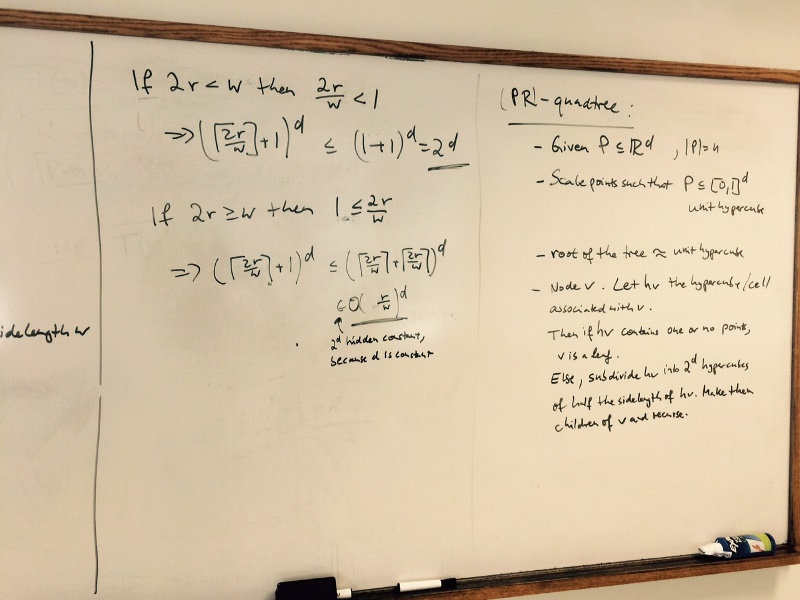 idelength w
If 2r < w then 2r/w < 1
=> (⌈2r/w⌉+1)^d ≤ (1+1)^d = 2^d
If 2r ≥ w then 1 ≤ 2r/w
=> (⌈2r/w⌉+1)^d ≤ (⌈2r/w⌉+⌈2r/w⌉)^d
∈ O(r/w)^d
2^d hidden constant,
because d is constant
(PR)-quadtree:
- Given P ⊆ ℝ^d , |P|=n
- Scale points such that P ⊆ [0,1]^d
unit hypercube
- root of the tree ≈ unit hypercube
- Node v. Let hv the hypercube/cell
associated with v.
Then if hv contains one or no points,
v is a leaf.
Else, subdivide hv into 2^d hypercubes
of half the sidelength of hv. Make them
children of v and recurse.